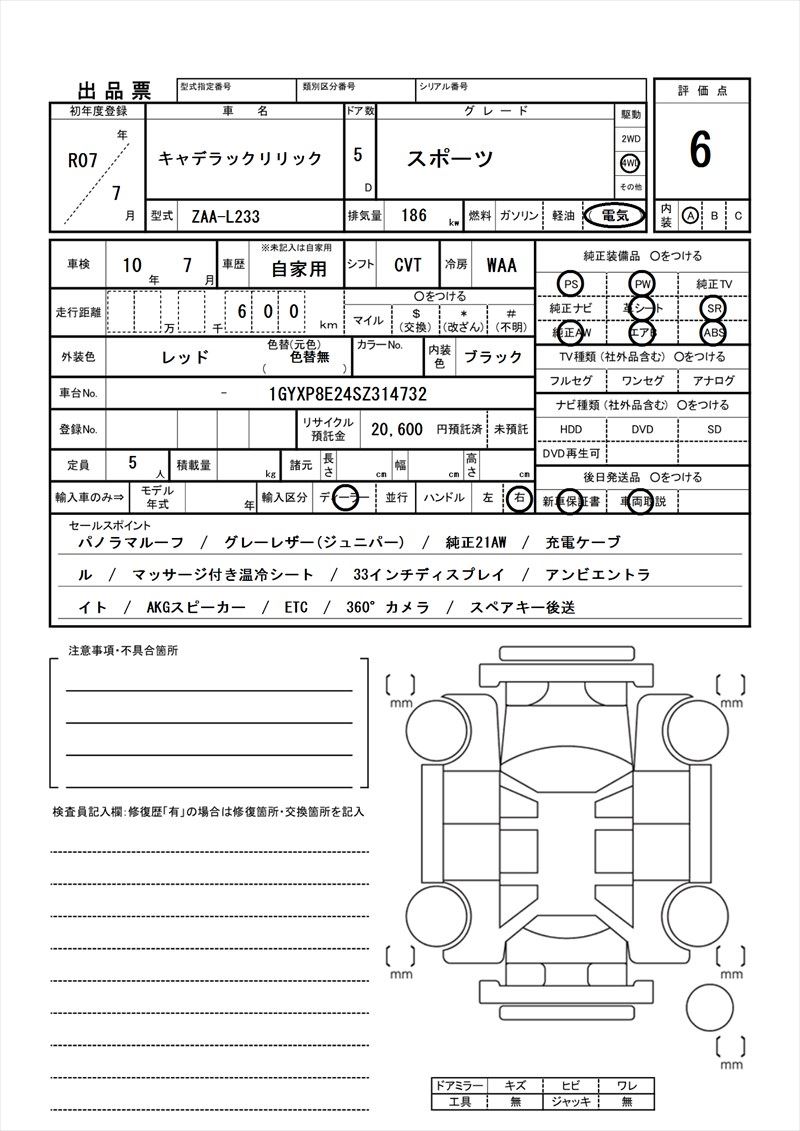 出品票 型式指定番号 類別区分番号 シリアル番号 評価点
初年度登録 車名 ドア数 グレード 駆動
年 2WD
R07 キャデラックリリック 5 スポーツ 4WD 6
7 D その他
月 型式 ZAA-L233 排気量 186 kw 燃料 ガソリン 軽油 電気 内装 A B C
車検 10 年 7 月 車歴 ※未記入は自家用 自家用 シフト CVT 冷房 WAA 純正装備品 ○をつける
PS PW 純正TV
走行距離 万 千 600 km ○をつける 純正ナビ 革シート SR
マイル $(交換) *(改ざん) #(不明) 純正AW エアB ABS
外装色 レッド 色替(元色) ( 色替無 ) カラーNo. 内装色 ブラック TV種類(社外品含む) ○をつける
フルセグ ワンセグ アナログ
車台No. - 1GYXP8E24SZ314732 ナビ種類(社外品含む) ○をつける
登録No. リサイクル預託金 20,600 円預託済 未預託 HDD DVD SD
DVD再生可
定員 5 人 積載量 kg 諸元 長さ cm 幅 cm 高さ cm 後日発送品 ○をつける
輸入車のみ⇒ モデル年式 年 輸入区分 ディーラー 並行 ハンドル 左 右 新車保証書 車両取説
セールスポイント
パノラマルーフ / グレーレザー(ジュニパー) / 純正21AW / 充電ケーブ
ル / マッサージ付き温冷シート / 33インチディスプレイ / アンビエントラ
イト / AKGスピーカー / ETC / 360°カメラ / スペアキー後送
注意事項・不具合箇所
mm mm
検査員記入欄:修復歴「有」の場合は修復箇所・交換箇所を記入
mm mm
mm
ドアミラー キズ ヒビ ワレ
工具 無 ジャッキ 無